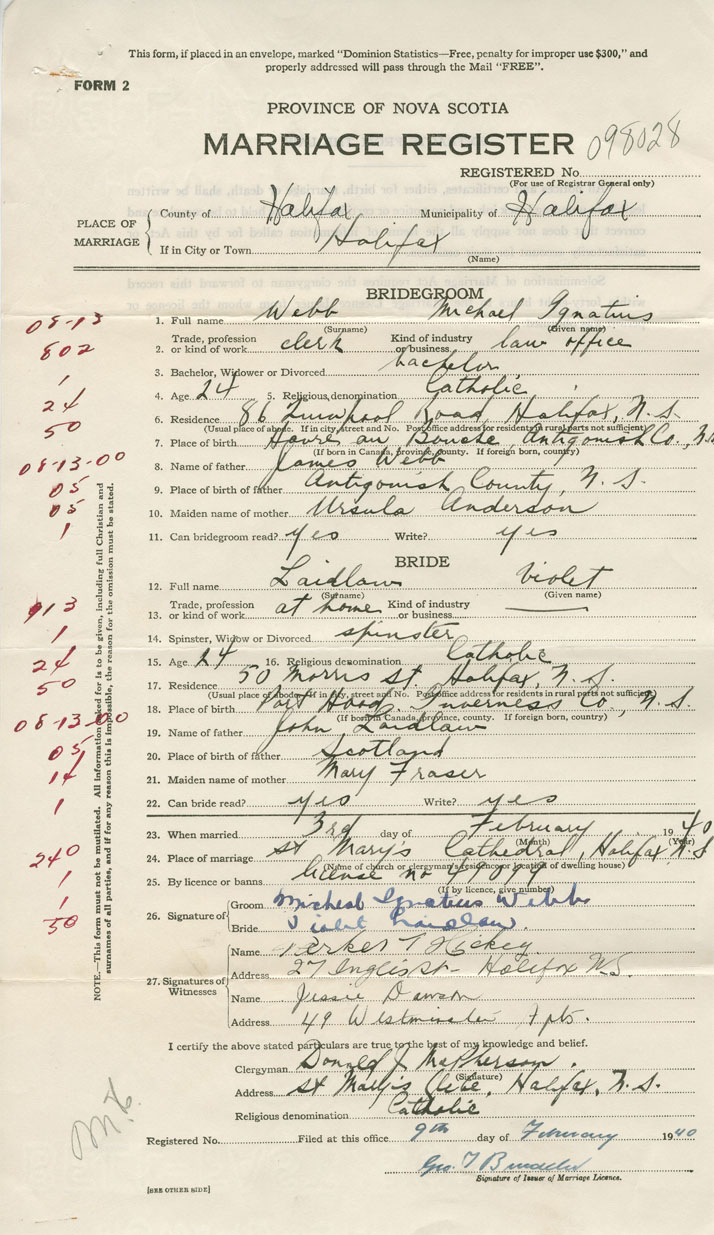 This form, if placed in an envelope, marked "Dominion Statistics—Free, penalty for improper use $300," and
properly addressed will pass through the Mail "FREE".
FORM 2
PROVINCE OF NOVA SCOTIA
MARRIAGE REGISTER 098028
REGISTERED No.
(For use of Registrar General only)
PLACE OF MARRIAGE
County of Halifax Municipality of Halifax
If in City or Town Halifax
(Name)
BRIDEGROOM
08-13 1. Full name Webb Michael Ignatius
(Surname) (Given name)
802 2. Trade, profession or kind of work clerk Kind of industry or business law office
1 3. Bachelor, Widower or Divorced bachelor
24 4. Age 24 5. Religious denomination Catholic
50 6. Residence 86 Road, Halifax, N.S.
(Usual place of abode. If in city, street and No. Post office address for residents of rural parts not sufficient)
08-13-00 7. Place of birth Havre au Bouche, Antigonish Co., N.S.
(If born in Canada, province, county. If foreign born, country)
05 8. Name of father James Webb
05 9. Place of birth of father Antigonish County, N.S.
10. Maiden name of mother Ursula Anderson
1 11. Can bridegroom read? yes Write? yes
BRIDE
12. Full name Laidlaw Violet
(Surname) (Given name)
913 13. Trade, profession or kind of work at home Kind of industry or business
1 14. Spinster, Widow or Divorced spinster
24 15. Age 24 16. Religious denomination Catholic
50 17. Residence 50 Morris St. Halifax, N.S.
(Usual place of abode. If in city, street and No. Post office address for residents in rural parts not sufficient)
08-13-00 18. Place of birth Port Hood, Inverness Co., N.S.
(If born in Canada, province, county. If foreign born, country)
19. Name of father John Laidlaw
05 20. Place of birth of father Scotland
14 21. Maiden name of mother Mary Fraser
1 22. Can bride read? yes Write? yes
23. When married 3rd day of February 1940
(Month) (Year)
240 24. Place of marriage St Mary's Cathedral, Halifax N.S
(Name of church or clergyman's residence or location of dwelling house)
1 25. By licence or banns license no
(If by licence, give number)
1 26. Signature of Groom Micheal Ignatius Webb
50 Bride Violet Laidlaw.
27. Signatures of Witnesses
Name
Address 27 Inglis St- Halifax N.S.
Name Jessie Dawson
Address 49 Westminster Apts.
I certify the above stated particulars are true to the best of my knowledge and belief.
Clergyman Donald J McPherson.
(Signature)
Address St Mary's Glebe, Halifax, N.S.
Religious denomination Catholic
Registered No. Filed at this office 9th day of February 1940
Geo. T
Signature of Issuer of Marriage Licence.
[SEE OTHER SIDE]
NOTE.—This form must not be mutilated. All information asked for is to be given, including full Christian and
surnames of all parties, and if for any reason this is impossible, the reason for the omission must be stated.